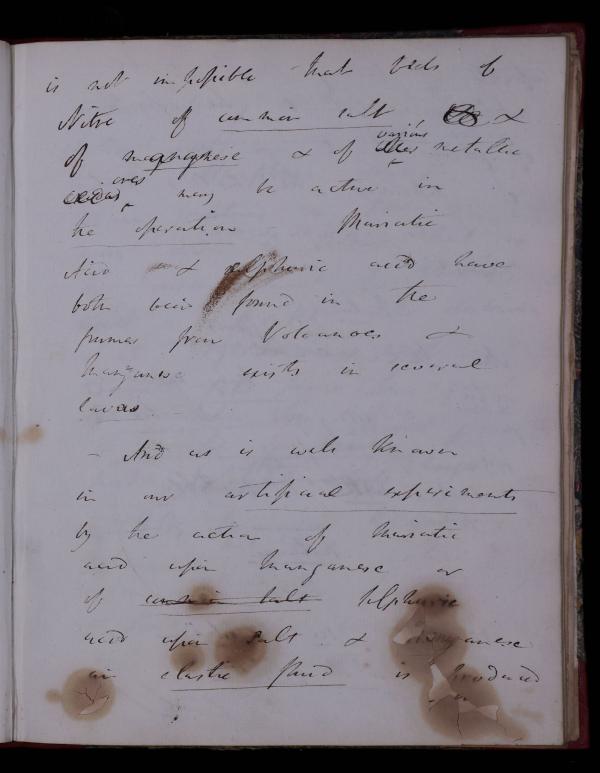 is not impossible that beds of
Nitre of common salt, &
of magnanese & of various metallic
ores may be active in
the operation Muriatic
Acid & sulphuric acid have
both been found in the
fumes from Volcanoes &
manganese exists in several
lavas. -
- And as is well known
in our artificial experiments
by the action of Muriatic
acid upon manganese or
of common salt sulphuric
acid upon salt & manganese
an elastic fluid is produced